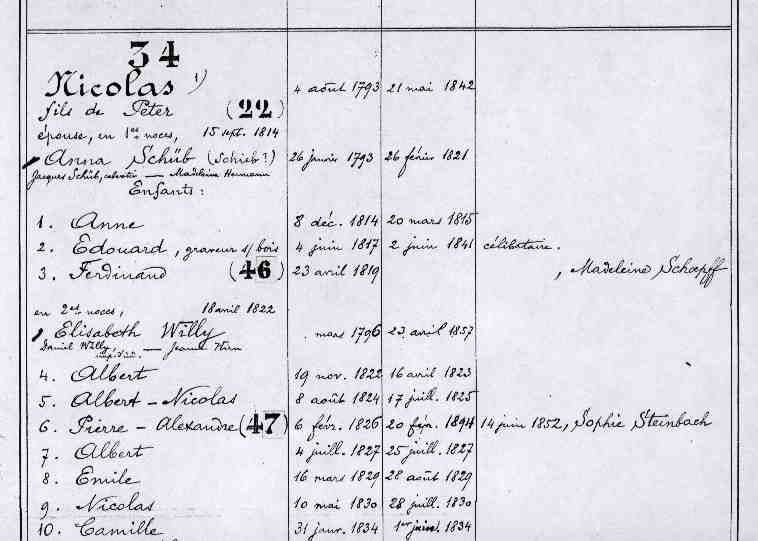 34
Nicolas 1) 4 août 1793 21 mai 1842
fils de Peter (22)
épouse, en 1es noces, 15 sept. 1814
Anna Schüb (Schieb?) 26 janvier 1793 26 février 1821
Jacques Schüb, — Madeleine Hermann
Enfants:
1. Anne 8 déc. 1814 20 mars 1815
2. Edouard, graveur s/bois 4 juin 1817 2 juin 1841 célibataire.
3. Ferdinand (46) 23 avril 1819 , Madeleine Schoepff
en 2es noces, 18 avril 1822
Elisabeth Willy . mars 1796 23 avril 1857
Daniel Willy — Jeanne
4. Albert 19 nov. 1822 16 avril 1823
5. Albert-Nicolas 8 août 1824 17 juill. 1825
6. Pierre-Alexandre (47) 6 févr. 1826 20 févr. 1894 14 juin 1852, Sophie Steinbach
7. Albert 4 juill. 1827 25 juill. 1827
8. Emile 16 mars 1829 28 août 1829
9. Nicolas 10 mai 1830 28 juill. 1830
10. Camille 31 janv. 1834 1er juin 1834